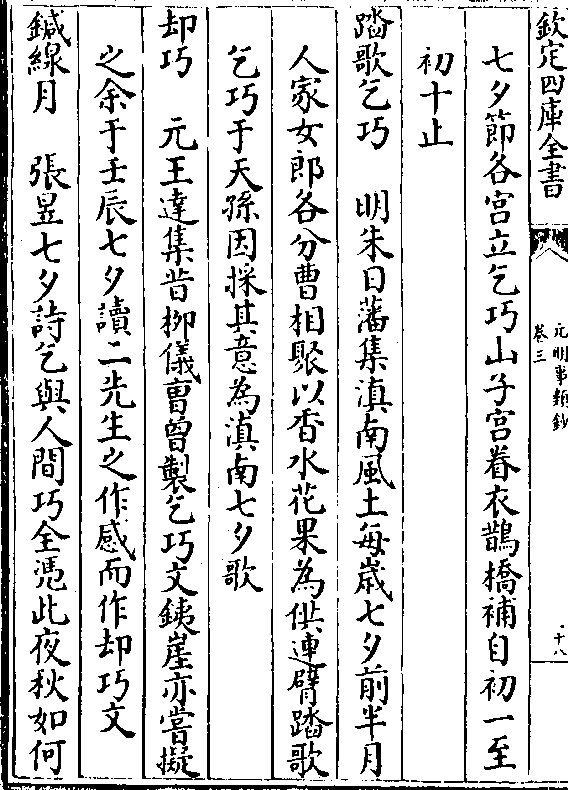 欽定四庫全書
元明事類鈔
卷三
十八
七夕節各宮立乞巧山子宮眷衣鵲橋補自初一至
初十止
踏歌乞巧　明朱日藩集滇南風土每歲七夕前半月
人家女郎各分曹相聚以香水花果為供連臂踏歌
乞巧于天孫因採其意為滇南七夕歌
却巧　元王逹集昔栁儀曹曽製乞巧文鉄崖亦嘗擬
之余于壬辰七夕讀二先生之作感而作却巧文
鍼線月　張昱七夕詩乞與人間巧全憑此夜秋如何